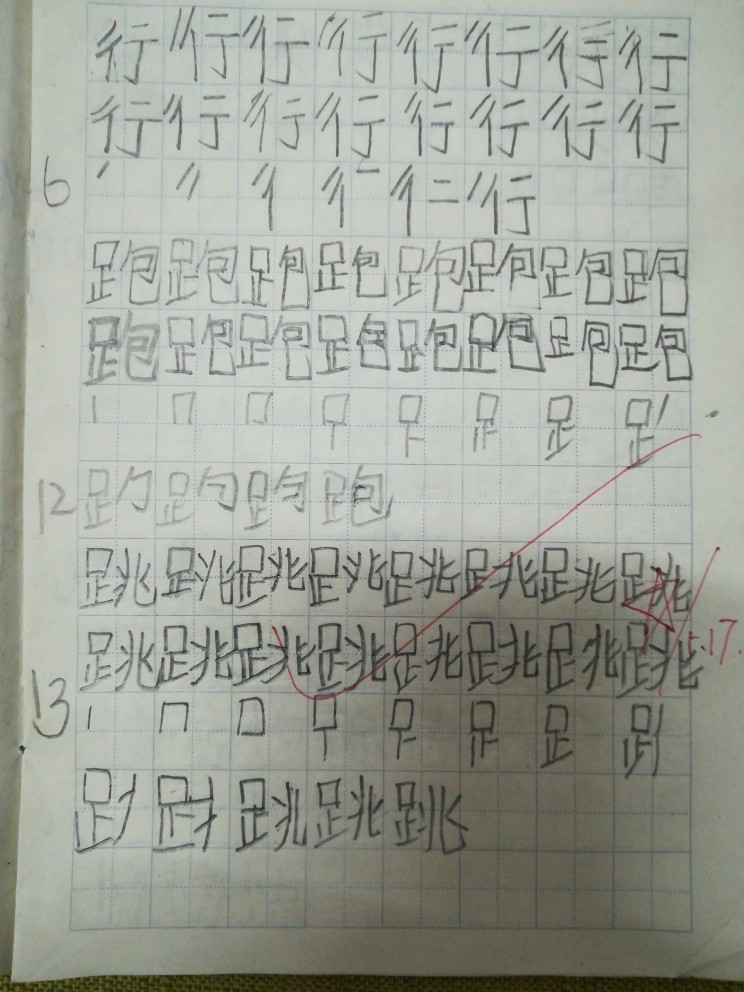 行行行行行行行行
行行行行行行行行
6 丿 彳 行
跑跑跑跑跑跑跑跑
跑跑跑跑跑跑跑跑
丨 冂 口 足
12 跑
跳跳跳跳跳跳跳跳
跳跳跳跳跳跳跳跳
5.17.
13 丨 冂 口 足
跳跳跳